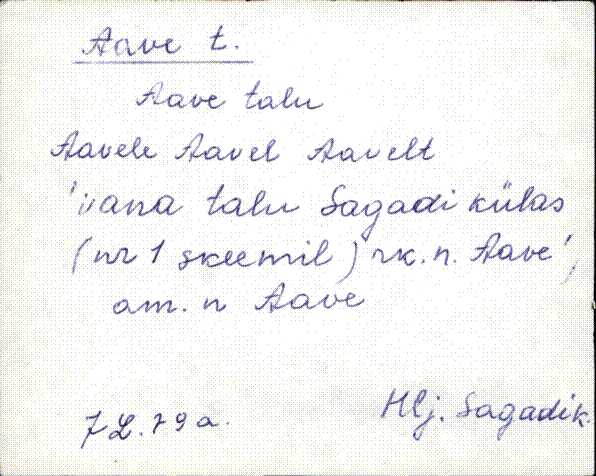 Aave t.
Aave talu
Aavele Aavel Aavelt
'vana talu Sagadi külas
(nr 1 skeemil) rk. n. Aave',
am. n Aave
79 a.
Hlj. Sagadi k.